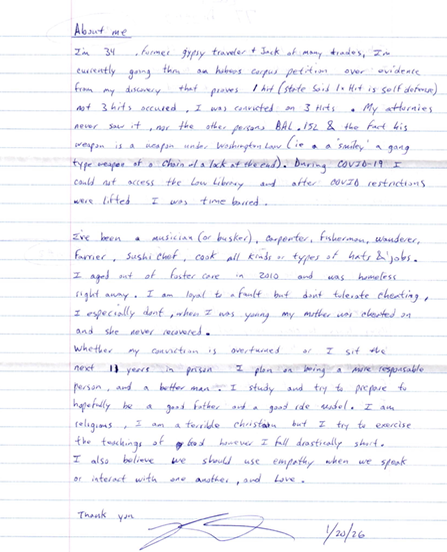 About me
I'm 34, former gypsy traveler + Jack of many trades, I'm
currently going thru an habeas corpus petition over evidence
from my discovery that proves 1 hit (state said 1x Hit is self defense)
not 3 hits occured, I was convicted on 3 Hits. My attornies
never saw it, nor the other persons BAL .152 & the fact his
weapon is a weapon under Washington Law (ie a a "smiley" & a gang
type weapon of a chain w/ a lock at the end). During COVID-19 I
could not access the Law Library and after COVID restrictions
were lifted I was time barred.
I've been a musician (or busker), carpenter, fisherman, wanderer,
furrier, sushi chef, cook all kinds or types of hats & jobs.
I aged out of foster care in 2010 and was homeless
right away. I am loyal to a fault but dont tolerate cheating,
I especially dont, when I was young my mother was cheated on
and she never recovered.
Whether my conviction is overturned or I sit the
next 11 years in prison I plan on being a more responsible
person, and a better man. I study and try to prepare to
hopefully be a good father and a good role model. I am
religious, I am a terrible christian but I try to exercise
the teachings of God however I fall drastically short.
I also believe we should use empathy when we speak
or interact with one another, and Love.
Thank you
1/20/26